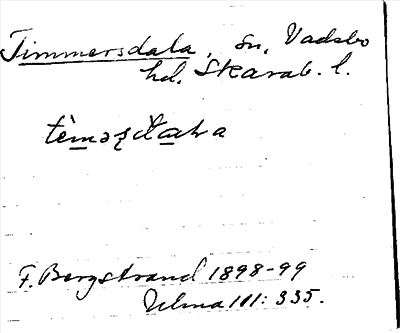 Timmersdala, sn, Vadsbo
hd. Skarab. l.
tèməʂḍaɫa
F. Bergstrand 1898-99
Ulma 111: 335.